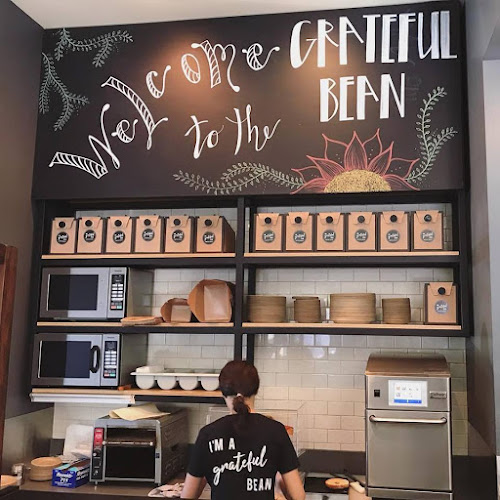 Welcome
to the
GRATEFUL
BEAN
I'M A
grateful
BEAN